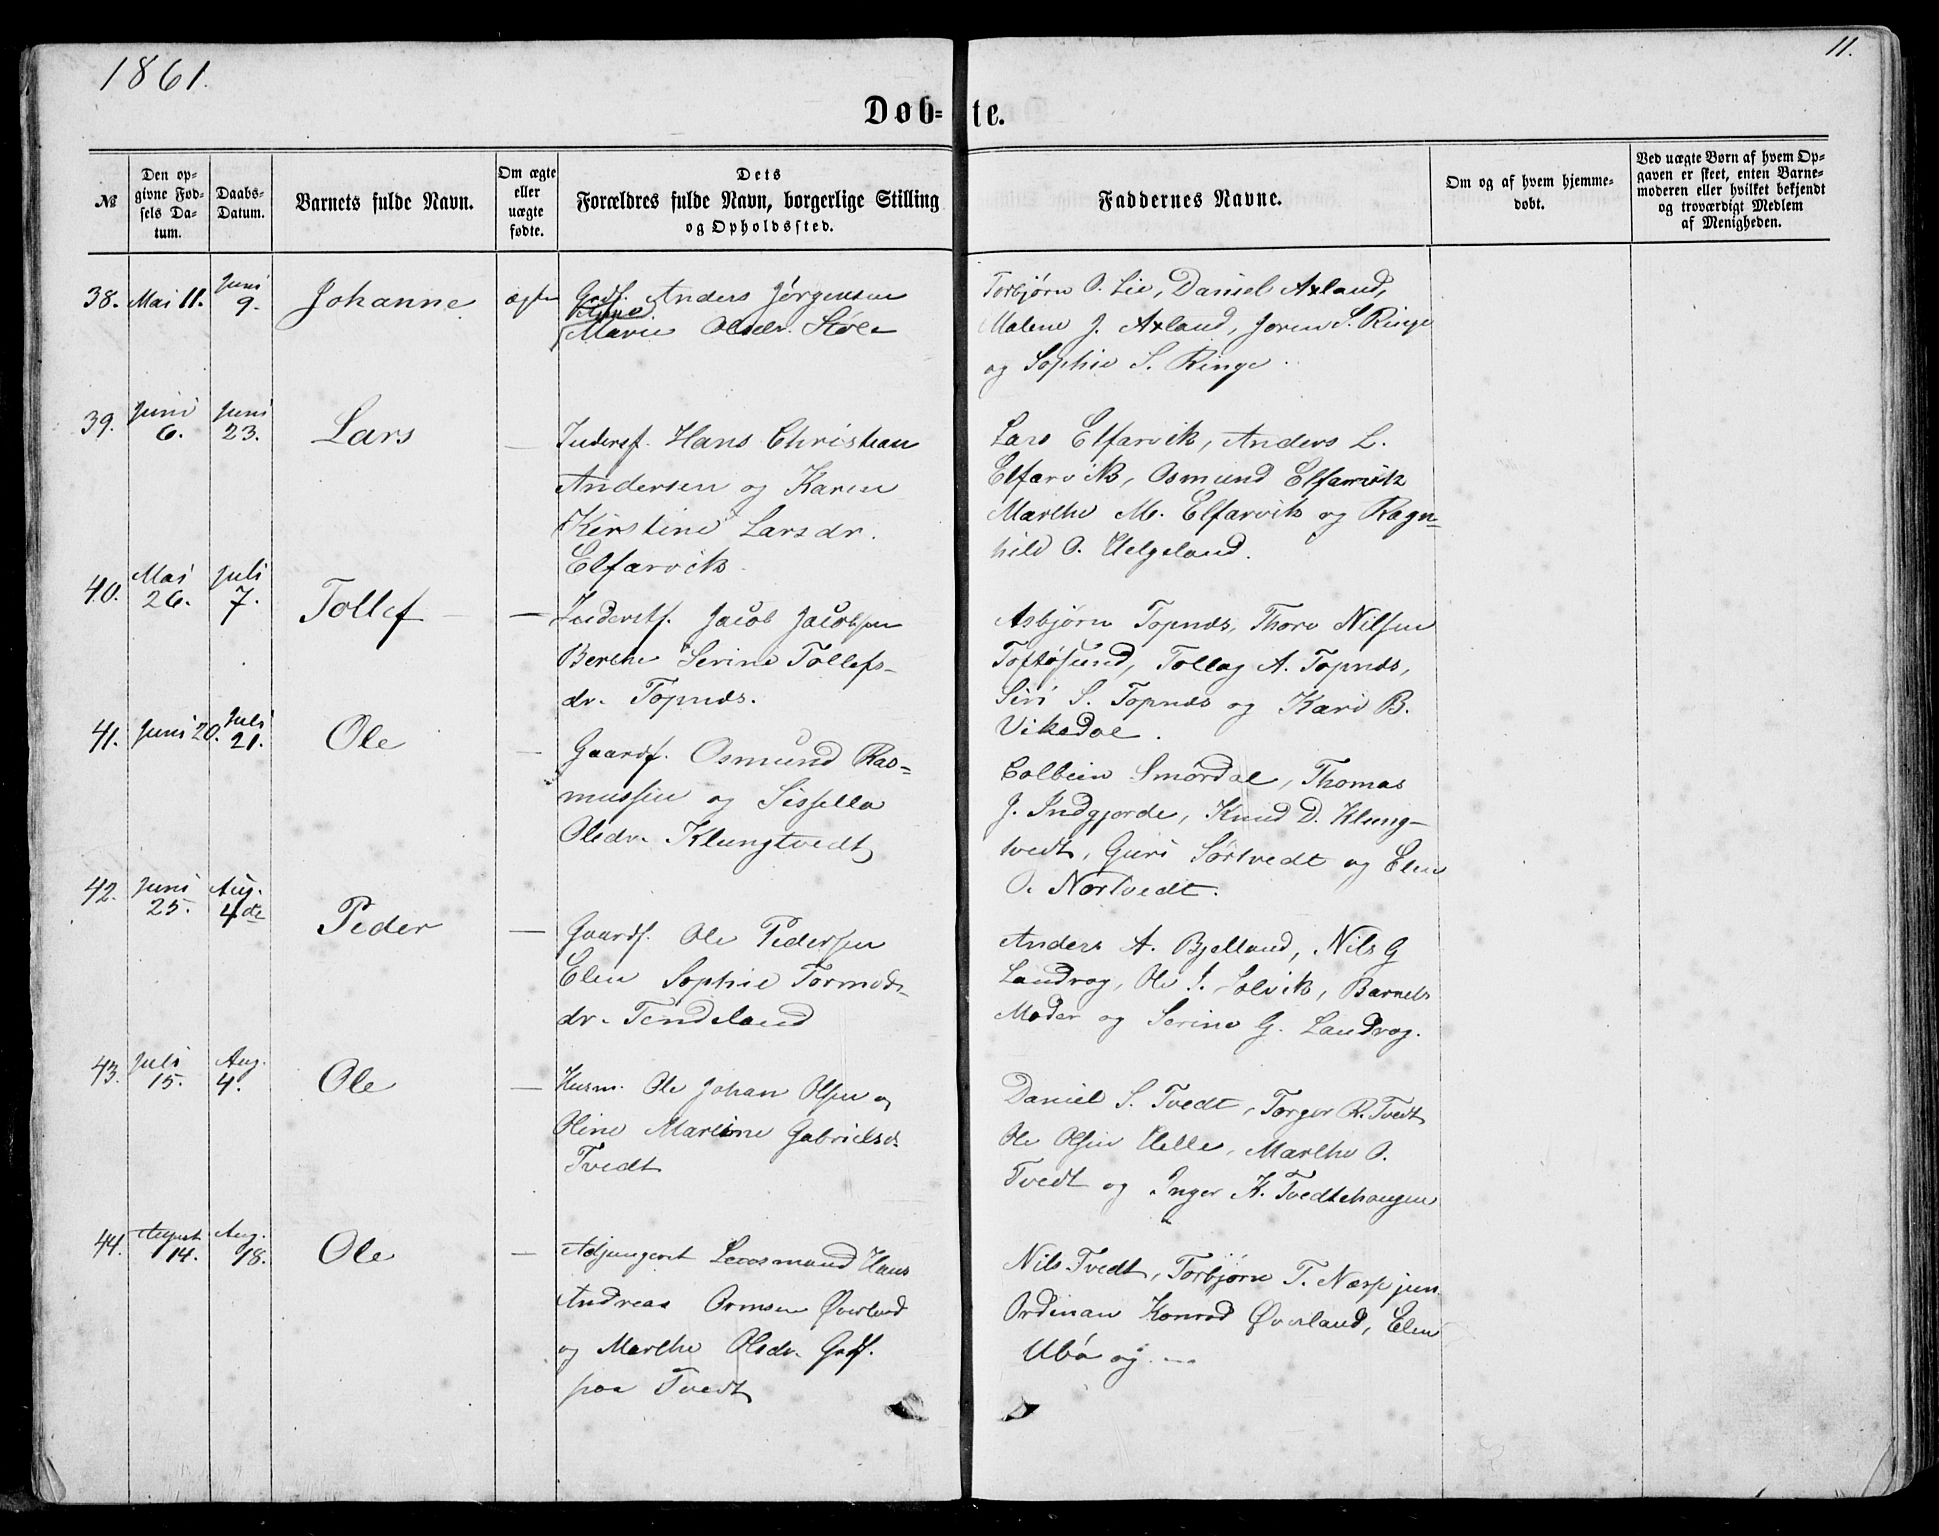 1861.
11.
Døb=te.
№
Den op-
givne Fød-
sels Da-
tum.
Daabs-
Datum.
Barnets fulde Navn.
Om ægte
eller
uægte
fødte.
Dets
Forældres fulde Navn, borgerlige Stilling
og Opholdssted.
Faddernes Navne.
Om og af hvem hjemme-
døbt.
Ved uægte Børn af hvem Op-
gaven er skeet, enten Barne-
moderen eller hvilket bekjendt
og troværdigt Medlem
af Menigheden.
38. Mai 11. Juni 9. Johanne ægte
Grdf. Anders Jørgensen
Marie Olsdr. Støle
Torbjørn O. Lie, Daniel Axland,
Malene J. Axland, Joren S. Ringe
og Sophie S. Ringe.
39. Juni 6. Juni 23. Lars —
Inderst. Hans Christian
Andersen og Karen
Kirstine Larsdr.
Elfarvik.
Lars Elfarvik, Anders L.
Elfarvik, Osmund Elfarvik
Marthe M. Elfarvik og Ragn=
hild O. Helgeland.
40. Mai 26. Juli 7. Tollef —
Inderstf. Jacob Jacobsen
Berthe Serine Tollefs-
dr. Topnæs.
Asbjørn Topnæs, Thore Nilsen
Toftøsund, Tollag A. Topnæs,
Siri S. Topnæs og Kari B.
Vikedal.
41. Juni 20. Juli 21. Ole —
Gaardf. Osmund Ras=
mussen og Sissella
Olsdr. Klungtvedt
Colbein Smørdal, Thomas
J. Indgjerde, Knud D. Klung-
tvedt, Guri Sørtvedt og Elen
O. Nortvedt.
42. Juni 25. Aug. 4de Peder —
Gaardf. Ole Pedersen
Elen Sophie Tormods-
dr. Tendeland
Anders A. Bjelland, Nils G
Landrog, Ole J. Solvik, Barnets
Moder og Serine G. Landrog.
43. Juli 15. Aug. 4. Ole —
Husm. Ole Johan Olsen og
Oline Martine Gabrielsd.
Tvedt
Daniel S. Tvedt, Torger R. Tvedt
Ole Olsen Helle, Marthe O.
Tvedt og Inger K. Tvedtehaugen
44. August 14. Aug. 18. Ole —
Adjungeret Lensmand Hans
Andreas Ormsen Øverland
og Marthe Olsdr. Grdf.
paa Tvedt
Nils Tvedt, Torbjørn T. Næss jun.
Ordinan Konrad Øverland, Elen
Ubø og